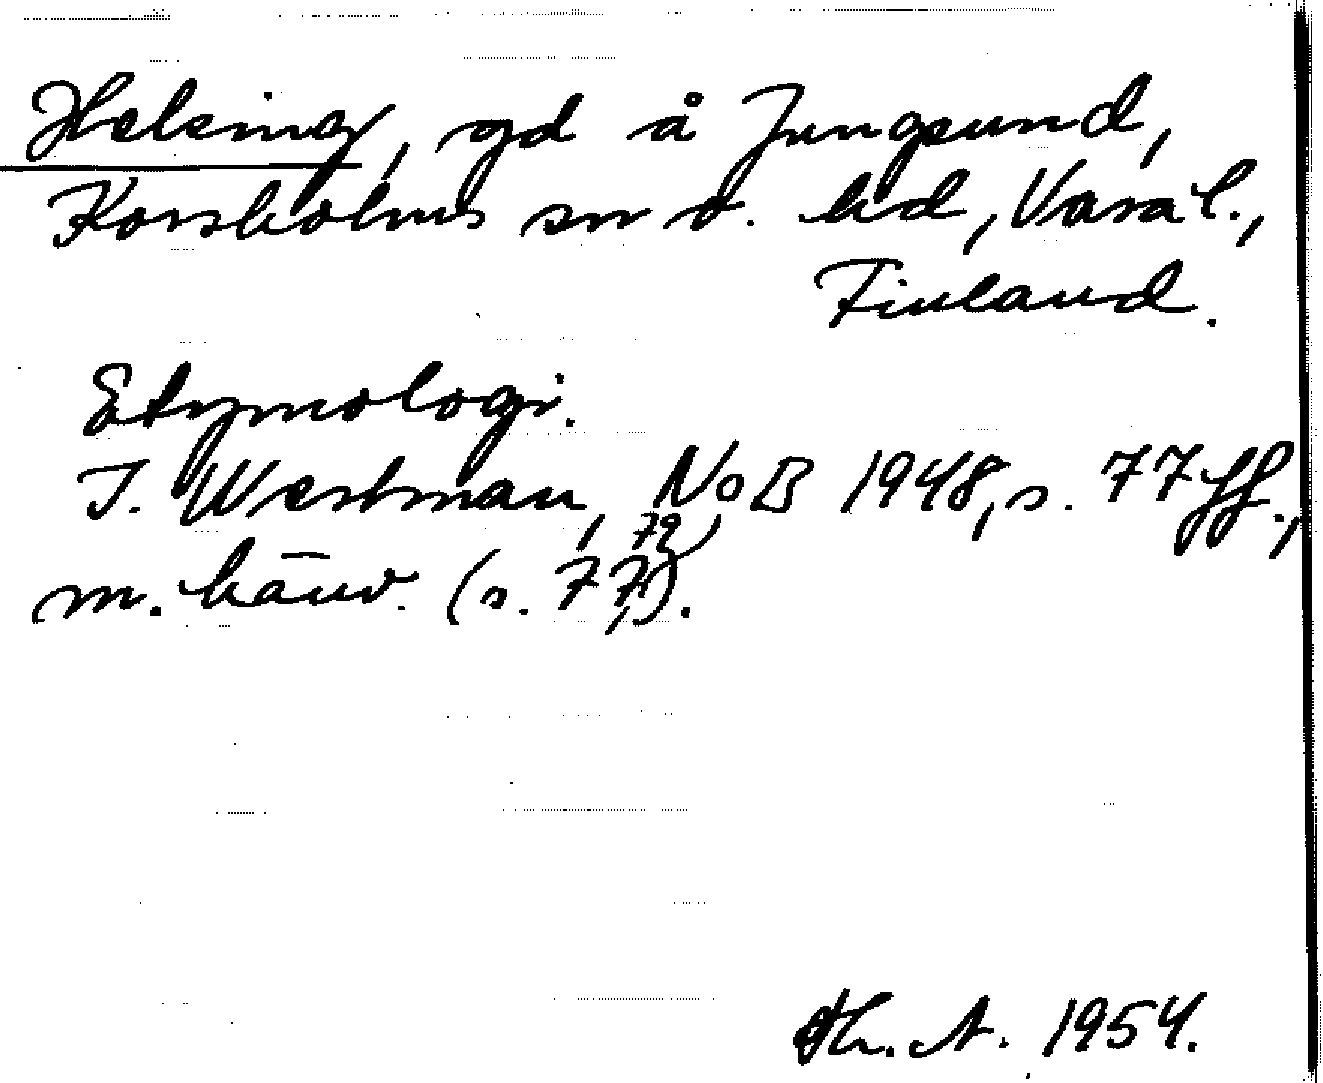 Helsing, gd å Jungsund,
Korsholms sn o. hd, Vasa l.,
Finland.
Etymologi.
I. Westman, NoB 1948, s. 77 ff.,
m. hänv. (s. 77, 79).
A. 1954.